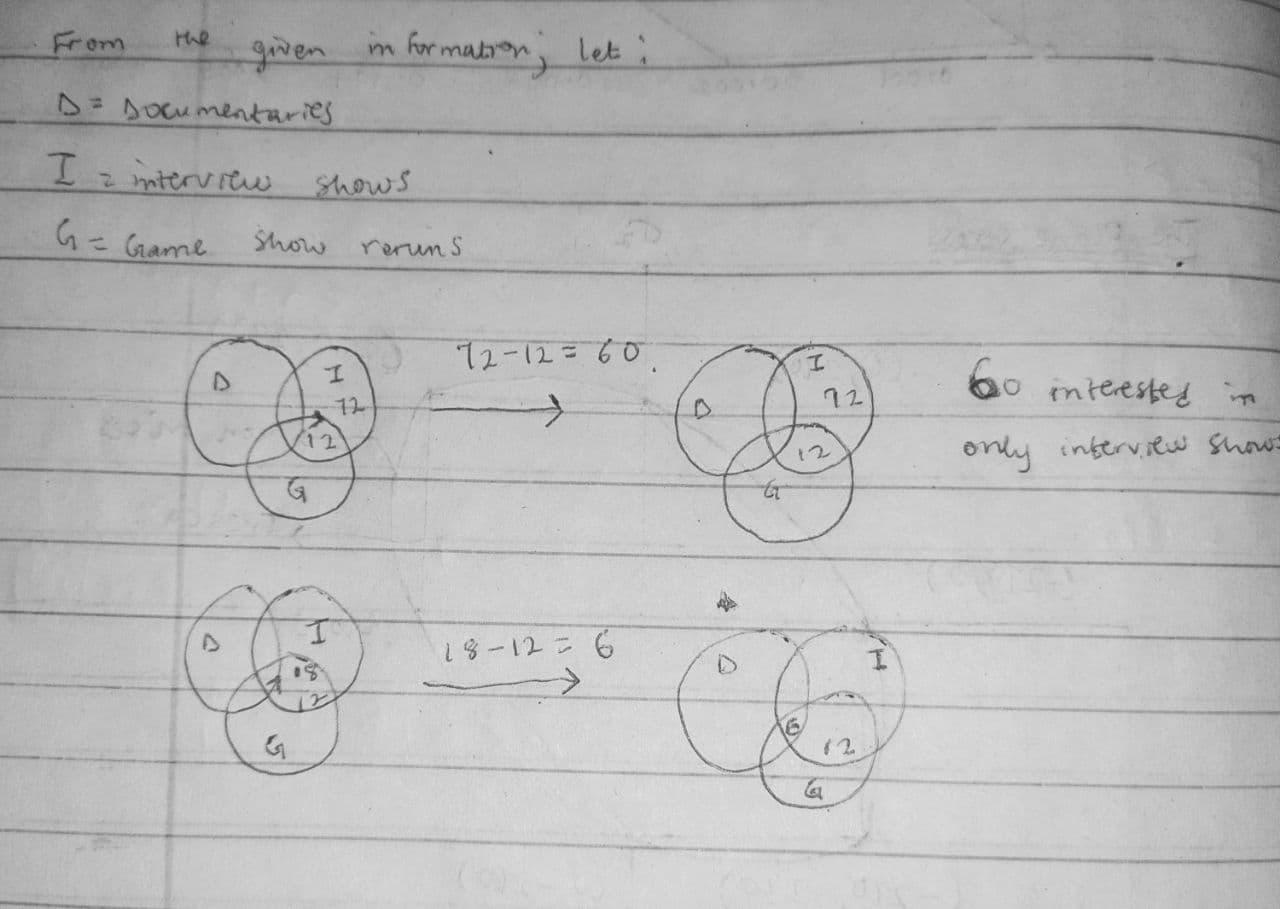 From the given information; let:
D = Documentaries
I = interview shows
G = Game show reruns
D I 72 12 G
72-12 = 60.
D I 72 12 G
60 interested in
only interview shows
D I 18 12 G
18-12 = 6
D I 6 12 G